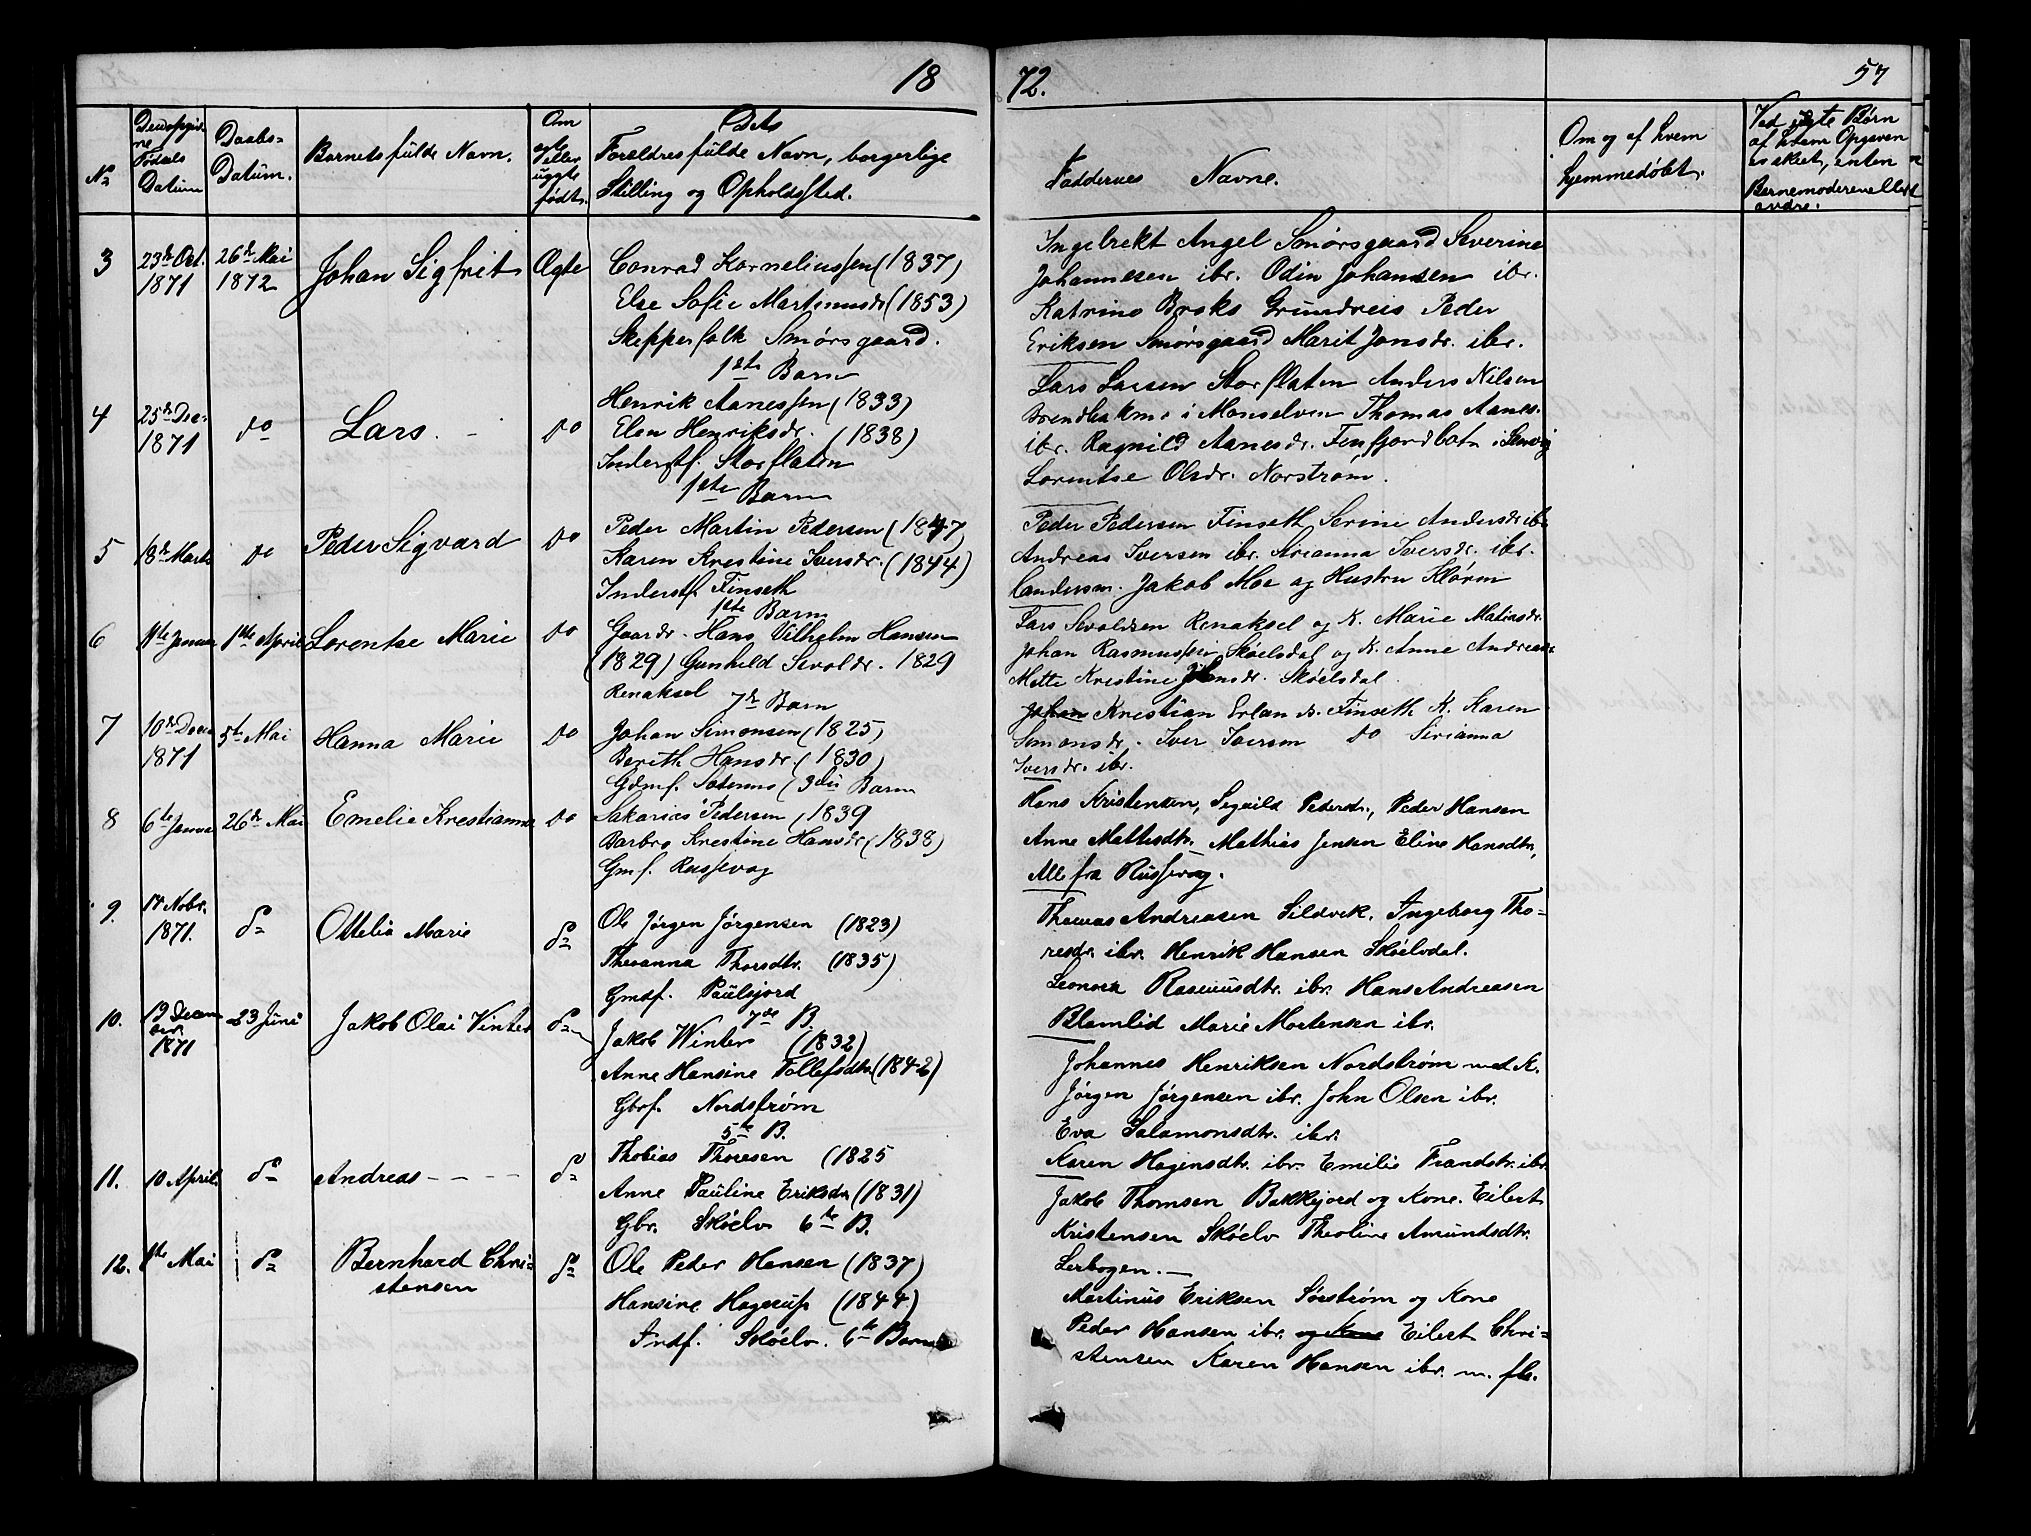 18
72.
57
No
Den opgiv-
ne
Fødsels
Datum
Daabs-
Datum.
Barnets fulde Navn.
Om
ægte
eller
uægte
født.
Dets
Forældres fulde Navn, borgerlige
Stilling og Opholdssted.
Faddernes Navne.
Om og af hvem
hjemmedøbt.
Ved uægte Børn
af hvem Opgiven
er skeet, enten
Barnemoderen eller
andre.
3
23de Oct.
1871
26de Mai
1872
Johan Sigfrit
Ægte
Conrad Korneliussen (1837)
Else Sofie Martinusdr (1853)
Skipperfolk Smørsgaard.
1ste Barn
Ingebrekt Angel Smørsgaard Severine
Johannesen ibr. Odin Johansen ibr.
Katrine Broks Grundreis Peder
Eriksen Smørsgaard Marit Jonsdr. ibr.
4
25de Dec.
1871
do
Lars.
do
Henrik Aanessen (1833)
Elen Henriksdr. (1838)
Inderstf. Storflaten
1ste Barn
Lars Larsen Storflaten Anders Nilsen
i Monselven Thomas Aanes.
ibr. Ragnild Aanesdr. Finfjordbotn i Lenvig
Lorentse Olsdr. Norstrøm.
5
18de Marts
do
Peder Sigvard
do
Peder Martin Pedersen (1847
Karen Krestine Iversdr. (1844)
Inderstf Finseth
1ste Barn
Peder Pedersen Finseth Serine Andersdr ibr
Andreas Iversen ibr. Sirianna Iversdr. ibr.
Jakob Moe og Hustru
6
1ste April
Lorentse Marie
do
Gaardr. Hans Vilhelm Hansen
(1829) Gunhild Sivoldr. 1829
Renaksel 7de Barn
Lars Sivoldsen Renaksel og K. Marie
Johan Rasmussen Skøelsdal og K. Anne Andreasdr
Mette Kristine Johnsdr. Skøelsdal.
7
10de Decm
1871
5te Mai
Hanna Marie
do
Johan Simonsen (1825)
Berith Hansdr. (1830)
(3die Barn
Johan Kristian Finseth K. Karen
Simonsdr. Iver Iversen do Sirianna
Iversdr. ibr.
8
6te Januar
26de Mai
Emelie Krestianna
do
Sakarias Pedersen (1839
Barbro Krestine Hansdr (1838)
Gmf. Russevag
Hans Kristensen, Sigvild Pedersdr., Peder Hansen
Anne Mattisdtr. Mathias Jensen Eline Hansdtr,
Alle fra Russevag.
9.
14 Nobr.
1871.
do
Ottelia Marie
do
Ole Jørgen Jørgensen (1823)
Theranna Thorsdtr. (1835)
Gmdf. Paulsjord
7de B.
Thomas Andreasen Sildvik. Ingeborg Tho-
resdr ibr. Henrik Hansen Skøelvdal.
Leonora Rasmusdtr. ibr. Hans Andreasen
Blomlid Marie Mortensen ibr.
10.
19 Decem
ber.
1871
23 Juni
Jakob Olai Vinter
do
Jakob Winter (1832)
Anne Hansine Tollefsdtr (1842)
Gbrf. Nordstrøm
5te B.
Johannes Henriksen Nordstrøm med K.
Jørgen Jørgensen ibr. John Olsen ibr.
Eva Salamonsdtr. ibr.
Karen Hagensdtr. ibr. Emilie Frandstr. ibr
11.
10 April
do
Andreas - - - -
do
Thobias Thoresen (1825
Anne Pauline Eriksdr (1831)
Gbr. Skøelv 6te B.
Jakob Thomsen Bakkejord og Kone. Eilert
Kristensen Skøelv Theoline Amundsdtr.
Lerbogen. —
12.
1ste Mai
do
Bernhard Chri-
stensen
do
Ole Peder Hansen (1837
Hansine Hagerup (1844)
Indf. Skøelv. 6te Barn
Martinus Eriksen Sørstrøm og Kone
Peder Hansen ibr. og Kone Eilert Chri-
stensen Karen Hansen ibr. m. fle.